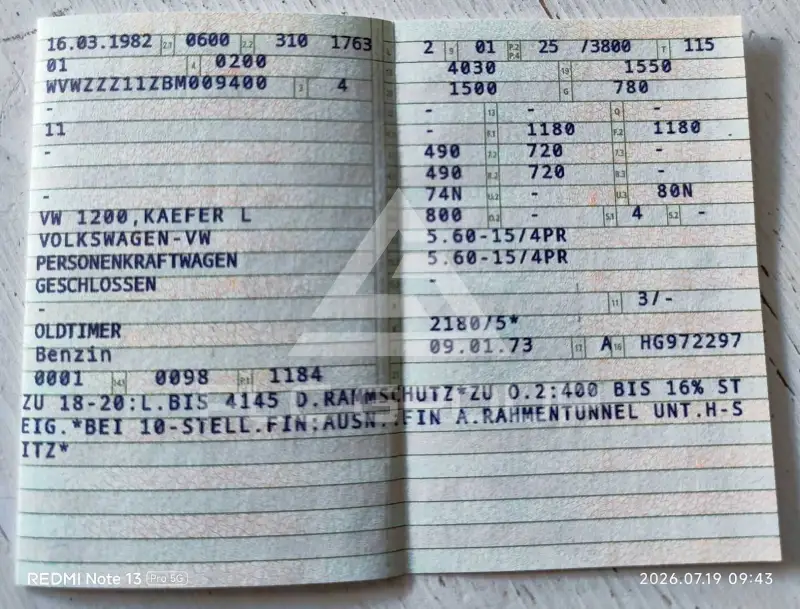 16.03.1982 2.1 0600 2.2 310 1763
01 4 0200
WVWZZZ11ZBM009400 3 4
-
11
-
-
VW 1200,KAEFER L
VOLKSWAGEN-VW
PERSONENKRAFTWAGEN
GESCHLOSSEN
-
OLDTIMER
Benzin
0001 14.1 0098 P.1 1184
2 9 01 P.2 P.4 25 /3800 T 115
4030 19 1550
1500 G 780
- 12 - Q -
- F.1 1180 F.2 1180
490 7.2 720 7.3 -
490 8.2 720 8.3 -
74N U.2 - U.3 80N
800 O.2 - S.1 4 S.2 -
5.60-15/4PR
5.60-15/4PR
-
11 3/-
2180/5*
09.01.73 17 A 16 HG972297
ZU 18-20:L.BIS 4145 D.RAMMSCHUTZ*ZU O.2:400 BIS 16% ST
EIG.*BEI 10-STELL.FIN:AUSN..FIN A.RAHMENTUNNEL UNT.H-S
ITZ*
REDMI Note 13 Pro 5G
2026.07.19 09:43